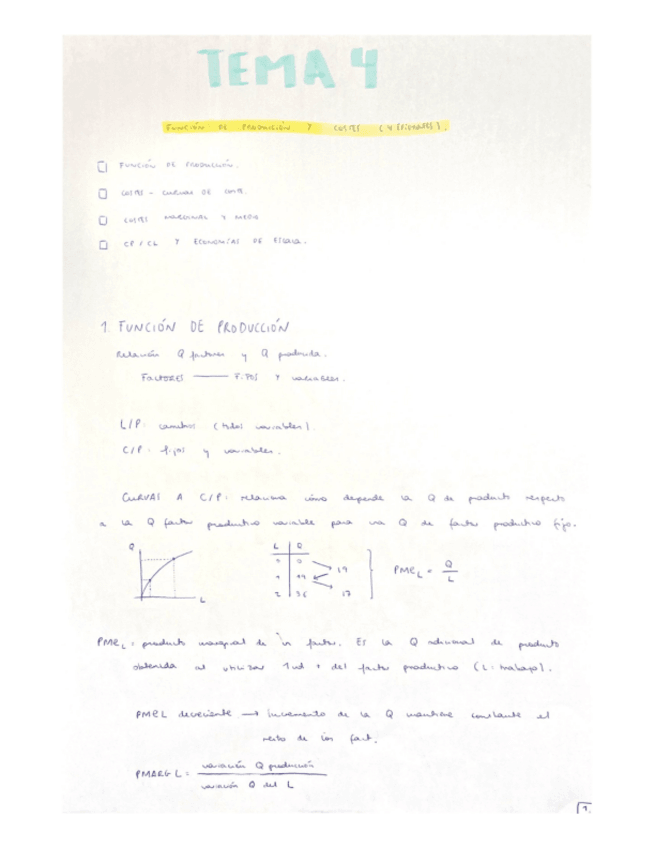 TEMA 4
FUNCIÓN DE PRODUCCIÓN Y COSTES (4 EPÍGRAFES).
FUNCIÓN DE PRODUCCIÓN.
COSTES - CURVAS DE COSTE.
COSTES MARGINAL Y MEDIO
CP / CL Y ECONOMÍAS DE ESCALA.
1. FUNCIÓN DE PRODUCCIÓN
Relación Q factores y Q producida.
FACTORES — FIJOS Y variables.
L/P: cambios (todos variables).
C/P: fijos y variables.
CURVAS A C/P: relaciona cómo depende la Q de producto respecto
a la Q factor productivo variable para una Q de factor productivo fijo.
Q
L
L Q
0 0
1 19
2 36
19
17
PMe L = Q / L
PMe L = producto marginal de un factor. Es la Q adicional de producto
obtenida al utilizar 1 ud + del factor productivo (L: trabajo).
PMeL decreciente → incremento de la Q mantiene constante el
resto de los fact.
PMARG L = variación Q producción
variación Q del L
1.